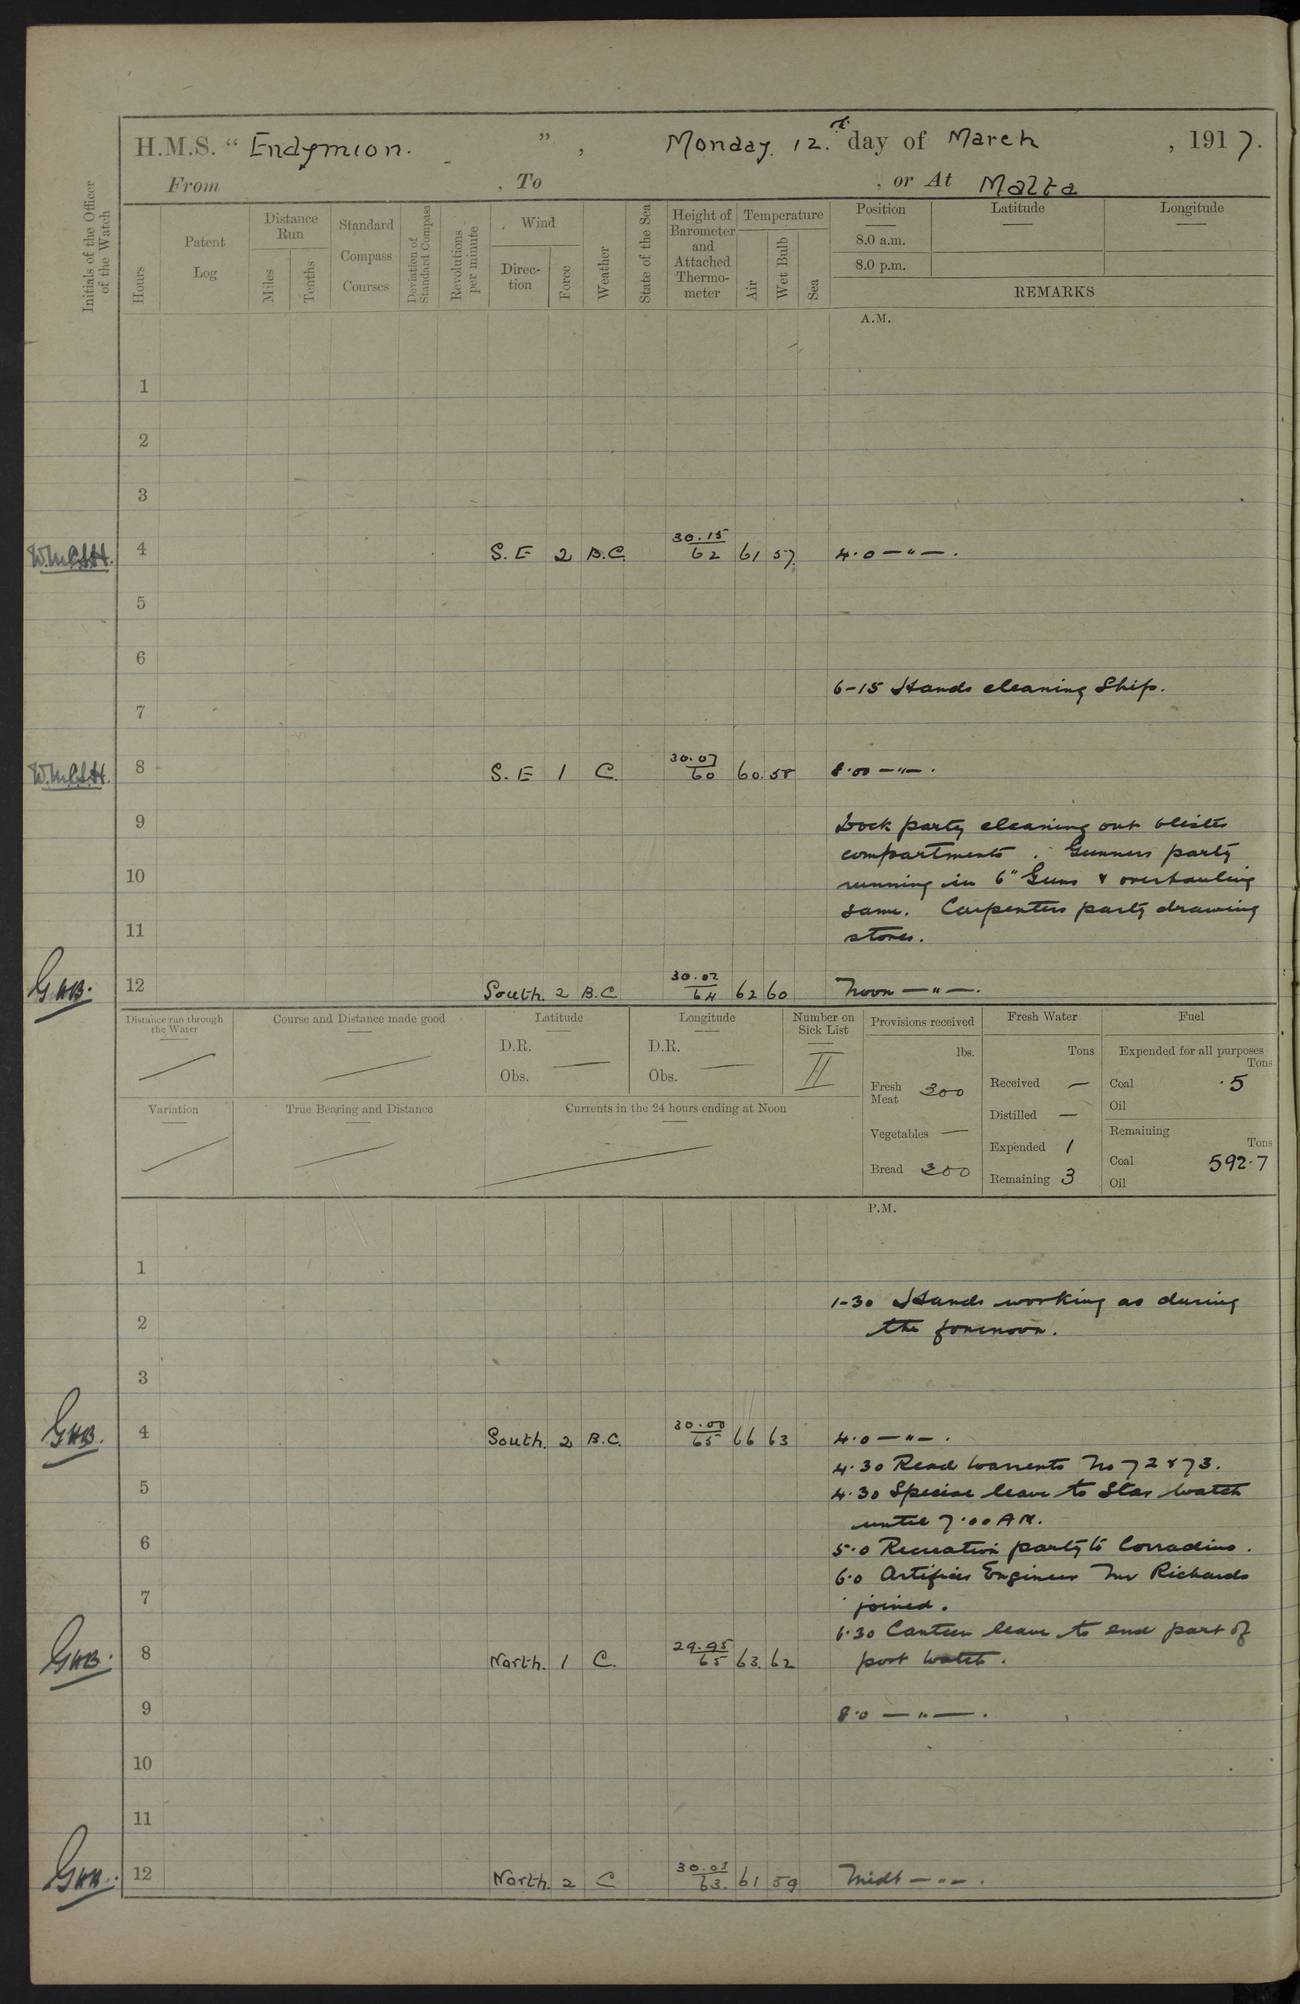 H.M.S. “ Endymion. ” , Monday. 12.th day of March , 1917.
From , To , or At Malta
Initials of the Officer of the Watch
Hours
Patent Log
Distance Run
Miles
Tenths
Standard Compass Courses
Deviation of Standard Compass
Revolutions per minute
Wind
Direction
Force
Weather
State of the Sea
Height of Barometer and Attached Thermometer
Temperature
Air
Wet Bulb
Sea
Position
8.0 a.m.
8.0 p.m.
Latitude
Longitude
REMARKS
A.M.
1
2
3
4 S.E 2 B.C. 30.15 62 61 57. 4.0 — " — .
5
6
6-15 Hands cleaning Ship.
7
8 S.E 1 C. 30.07 60 60. 58 8.00 — " — .
9 Dock party cleaning out blister
compartments . Gunners party
10 running in 6" Guns & overhauling
same. Carpenters party drawing
11 stores.
GHB. 12 South. 2 B.C 30.02 64 62 60 Noon — " — .
Distance run through the Water
Course and Distance made good
Latitude
D.R.
Obs. —
Longitude
D.R.
Obs. —
Number on Sick List
11
Variation
True Bearing and Distance
Currents in the 24 hours ending at Noon
Provisions received
lbs.
Fresh Meat 300
Vegetables —
Bread 300
Fresh Water
Tons
Received —
Distilled —
Expended 1
Remaining 3
Fuel
Expended for all purposes
Tons
Coal .5
Oil
Remaining
Tons
Coal 592.7
Oil
P.M.
1
1-30 Hands working as during
2 the forenoon.
3
GHB. 4 South. 2 B.C. 30.00 65 66 63 4.0 — " — .
4.30 Read Warrents No 72 & 73.
5 4.30 Special leave to Star Watch
until 7.00 AM.
6 5.0 Recreation party to Corradino.
6.0 Artificer Engineer Mr Richards
7 joined.
6.30 Canteen leave to 2nd part of
GHB. 8 North. 1 C. 29.95 65 63. 62 port Watch.
9 8.0 — " — .
10
11
12 North. 2 C 30.03 63. 61 59 Midt — " — .